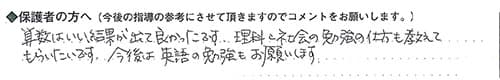 ◆保護者の方へ（今後の指導の参考にさせて頂きますのでコメントをお願いします。）
算数はいい結果が出て良かったです…理科と社会の勉強の仕方も教えて
もらいたいです。今後は英語の勉強もお願いします。